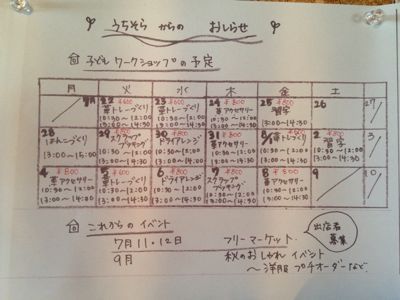 うちそら からの おしらせ
子ども ワークショップの予定
月 火 水 木 金 土
7月 22 ¥600 23 ¥600 24 ¥800 25 ¥800 26 27
革トレーづくり 革トレーづくり 革アクセサリー 習字
10:30〜12:00 10:30〜12:00 10:30〜12:00 13:00〜14:30
13:00〜14:30 13:00〜14:30 13:00〜14:30
28 29 ¥800 30 ¥800 31 ¥800 8/1 ¥600 2 ¥800 3
はんこづくり スクラップブッキング ドライアレンジ 革アクセサリー 革トレーづくり 習字
13:00〜15:00 10:30〜12:00 10:30〜12:00 10:30〜12:00 10:30〜12:00 13:00〜14:30
13:00〜14:30 13:00〜14:30 13:00〜14:30 13:00〜14:30
4 ¥800 5 ¥600 6 ¥800 7 ¥800 8 ¥800 9 10
革アクセサリー 革トレーづくり ドライアレンジ スクラップブッキング 革アクセサリー
10:30〜12:00 10:30〜12:00 10:30〜12:00 10:30〜12:00 10:30〜12:00
13:00〜14:30 13:00〜14:30 13:00〜14:30 13:00〜14:30 13:00〜14:30
これからの イベント
7月11・12日 フリーマーケット
出店者募集
9月 秋のおしゃれ イベント
〜洋服 プチオーダーなど